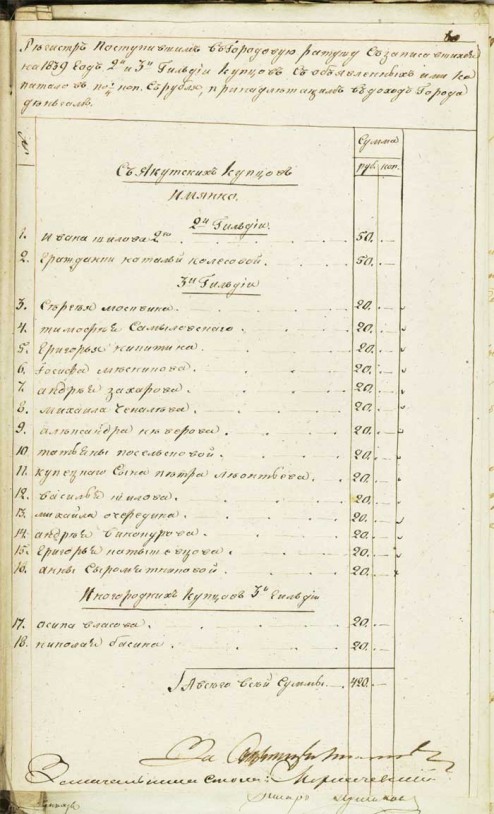 Регистръ Поступившимъ въ Городовую ратушу съ записавшихся
на 1839 Годъ 2й и 3й Гильдіи купцовъ съ объявленныхъ ими ка
питаловъ по коп. съ рубля, принадлежащимъ въ доходъ Города
деньгамъ.
Сумма
руб. коп.
Съ Якутскихъ Купцовъ
Имянно.
2й Гильдіи.
1. Ивана шилова 2го 50.
2. Гражданки натальи колесовой. 50.
3й Гильдіи
3. Сергея москвина. 20.
4. тимофея Самыловскаго. 20.
5. Григорья никитина. 20.
6. Іосифа 20.
7. андрея захарова. 20.
8. михаила 20.
9. александра неверова. 20.
10. татьяны посельсковой. 20.
11. купецкаго Сына петра леонтьева. 20.
12. василья шилова. 20.
13. михайла очередина. 20.
14. андрея винокурова. 20.
15. Григорья 20.
16. анны Сыромятниковой. 20.
Иногородныхъ купцовъ 3й Гильдіи
17. осипа власова. 20.
18. николая басина. 20.
А всего всей Суммы 420.
За